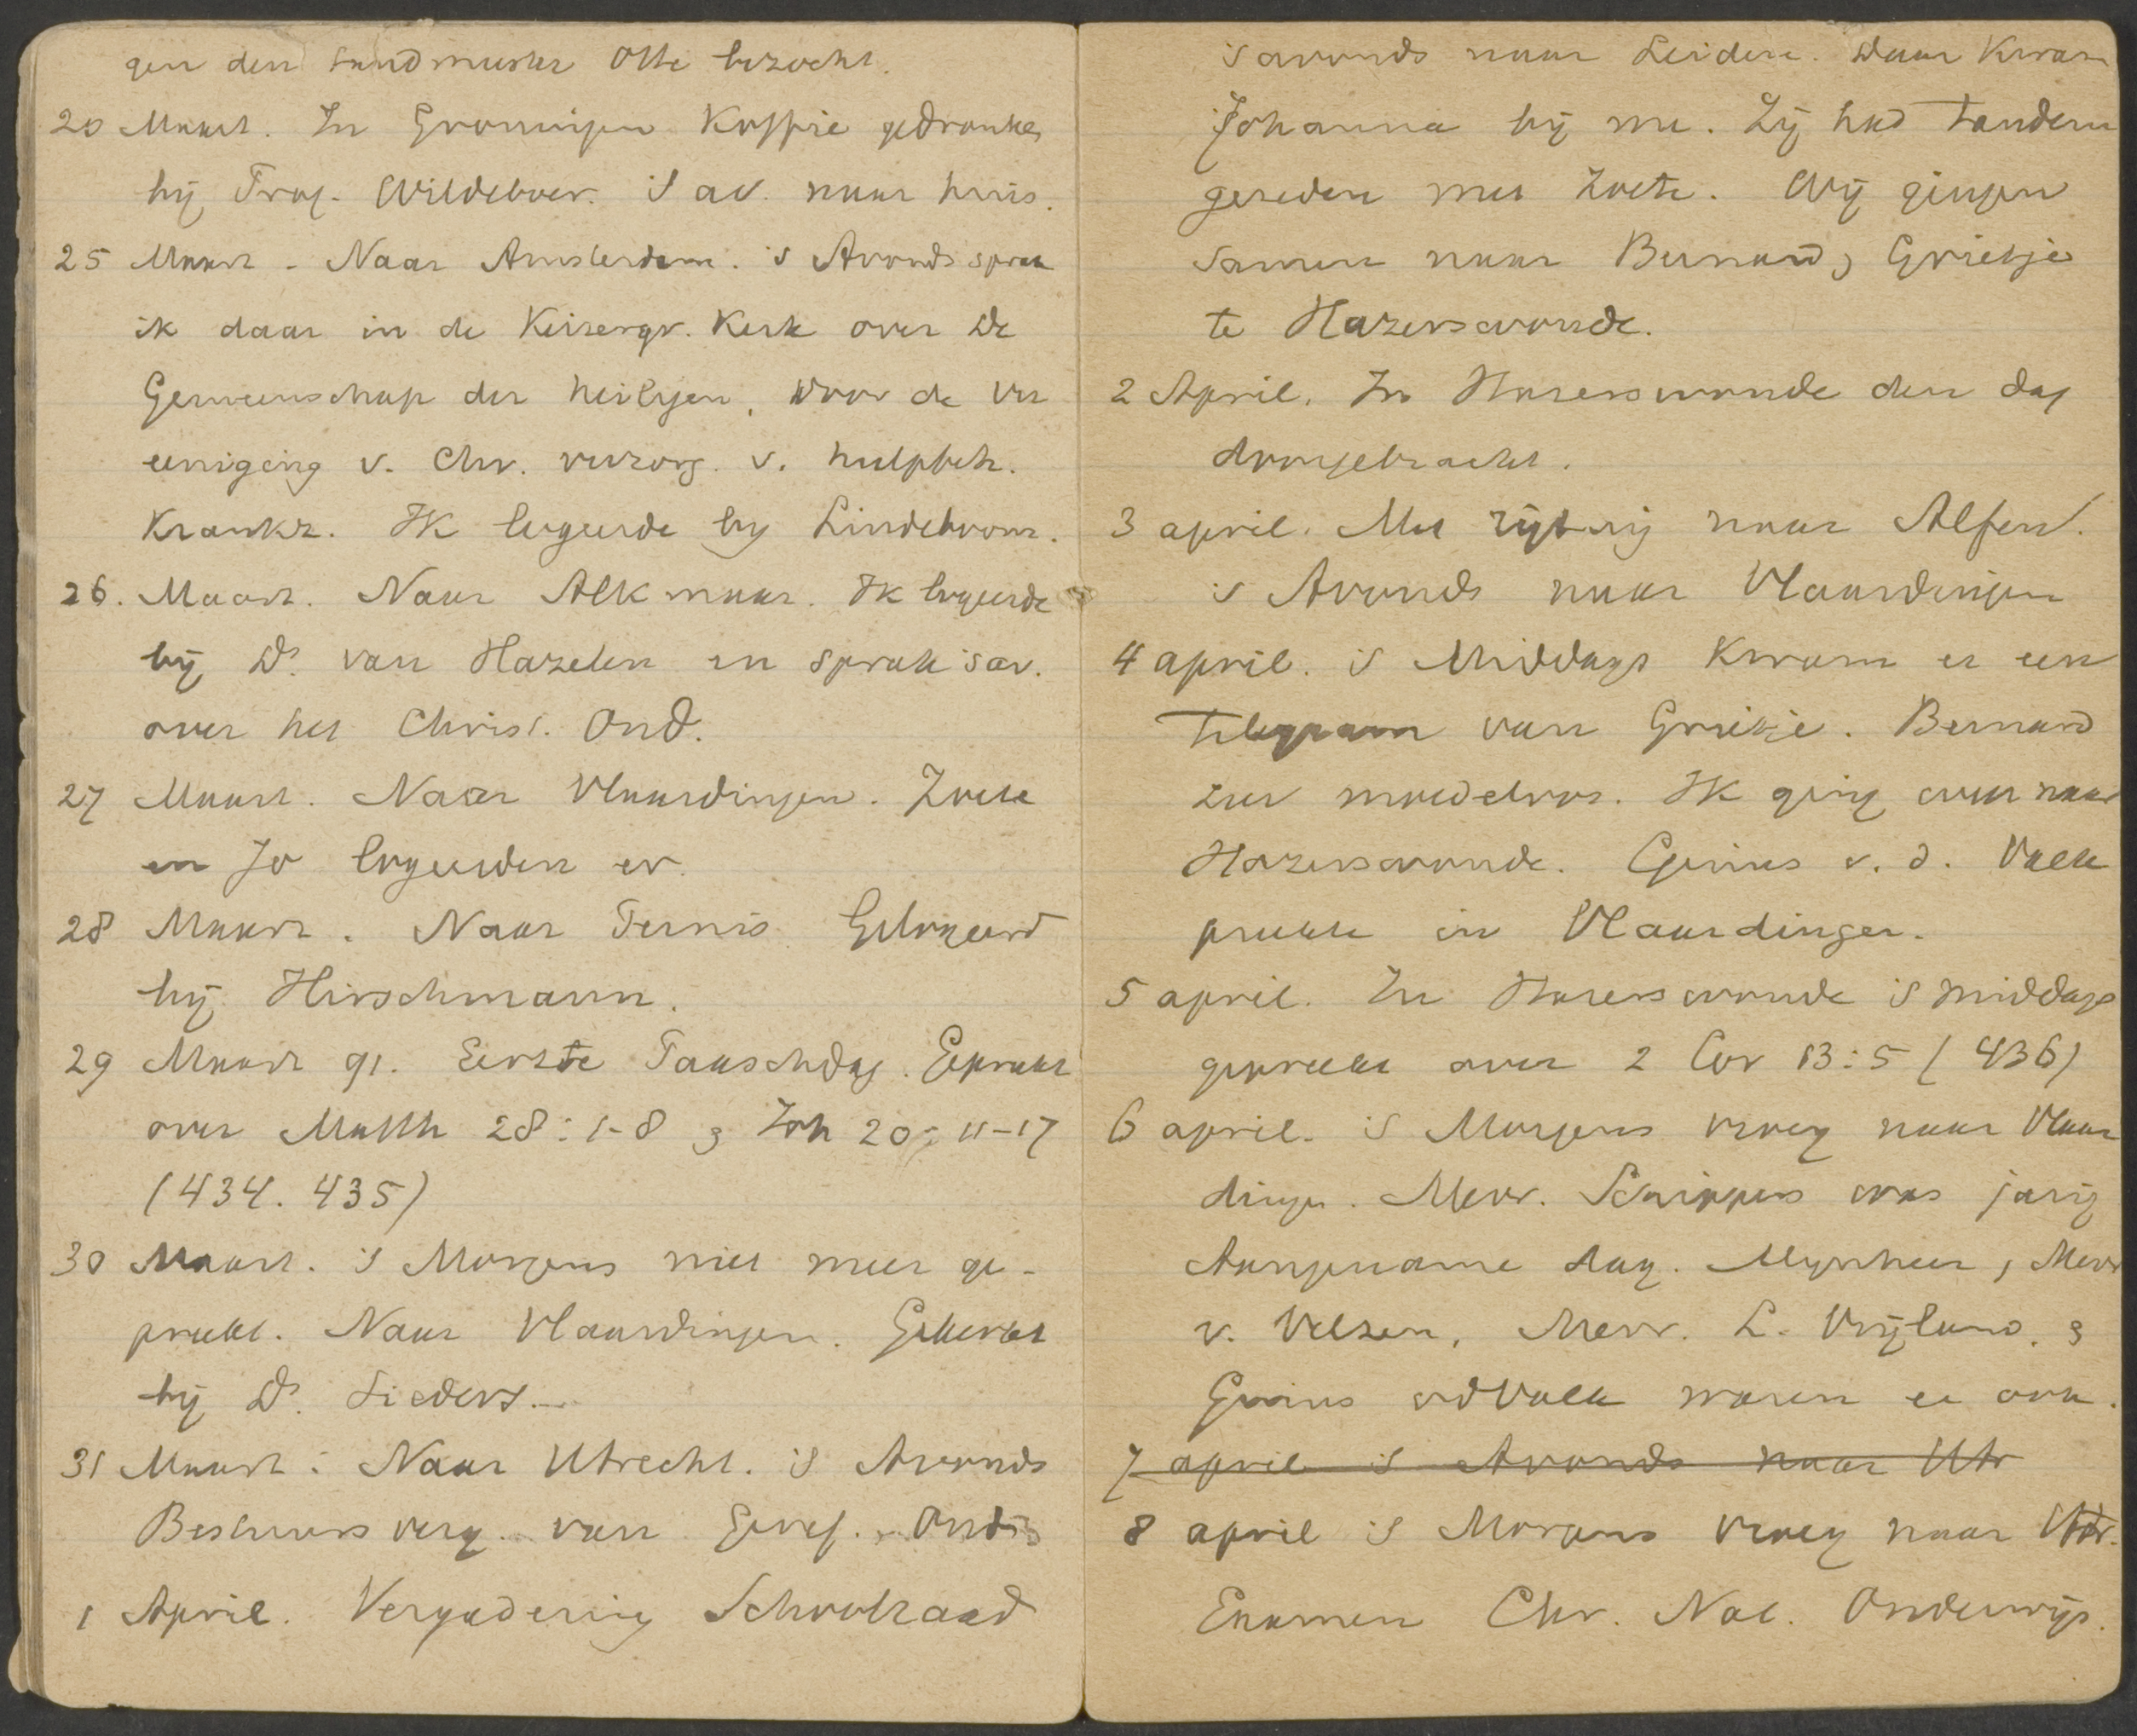 gen den landmeter Otte bezocht.
20 Maart. In Groningen Koffie gedronken
bij Prof. Wildeboer. 's av. naar huis.
25 Maart - Naar Amsterdam. 's Avonds sprak
ik daar in de Keizersgr. Kerk over De
Gemeenschap der heiligen, voor de Ver
eeniging v. Chr. verzorg. v. hulpbeh.
Krankz. IK logeerde bij Lindeboom.
26. Maart. Naar Alkmaar. Ik logeerde
bij Ds van Hazelen en sprak 's av.
over het Christ. Ond.
27 Maart. Naar Vlaardingen. Zoete
en Jo logeerden er.
28 Maart. Naar Pernis. Gelogeerd
bij Hirschmann.
29 Maart 91. Eerste Paaschdag. Gepreekt
over Matth 28:1-8 & Joh 20:11-17
(434. 435)
30 Maart. 's Morgens niet meer ge-
preekt. Naar Vlaardingen. Gekerkt
bij Ds.
31 Maart: Naar Utrecht. 's Avonds
Bestuursverg. van Geref. Ond.
1 April. Vergadering Schoolraad
's avonds naar Leiden. Daar Kwam
Johanna bij me. Zij had tandem
gereden met Zoete. Wij gingen
samen naar Bernard & Grietje
te Hazerswoude.
2 April. In Hazerswoude den dag
doorgebracht.
3 april. Met rijtuig naar Alfen.
's Avonds naar Vlaardingen
4 april. 's Middags Kwam er een
Telegram van Grietje. Bernard
zeer moedeloos. IK ging weer naar
Hazerswoude. Gerrius v. d. Valk
preekte in Vlaardingen.
5 april. In Hazerswoude 's middags
gepreekt over 2 Cor 13:5 (436)
6 april. 's Morgens vroeg naar Vlaar
dingen. Mevr. was jarig
Aangename dag. Mynheer, Mevr
v. Velzen, Mevr. L. Vrijland, &
vdValk waren er ook.
7 april 's Avonds naar Utr
8 april 's Morgens vroeg naar Utr.
Examen Chr. Nat. Onderwijs.